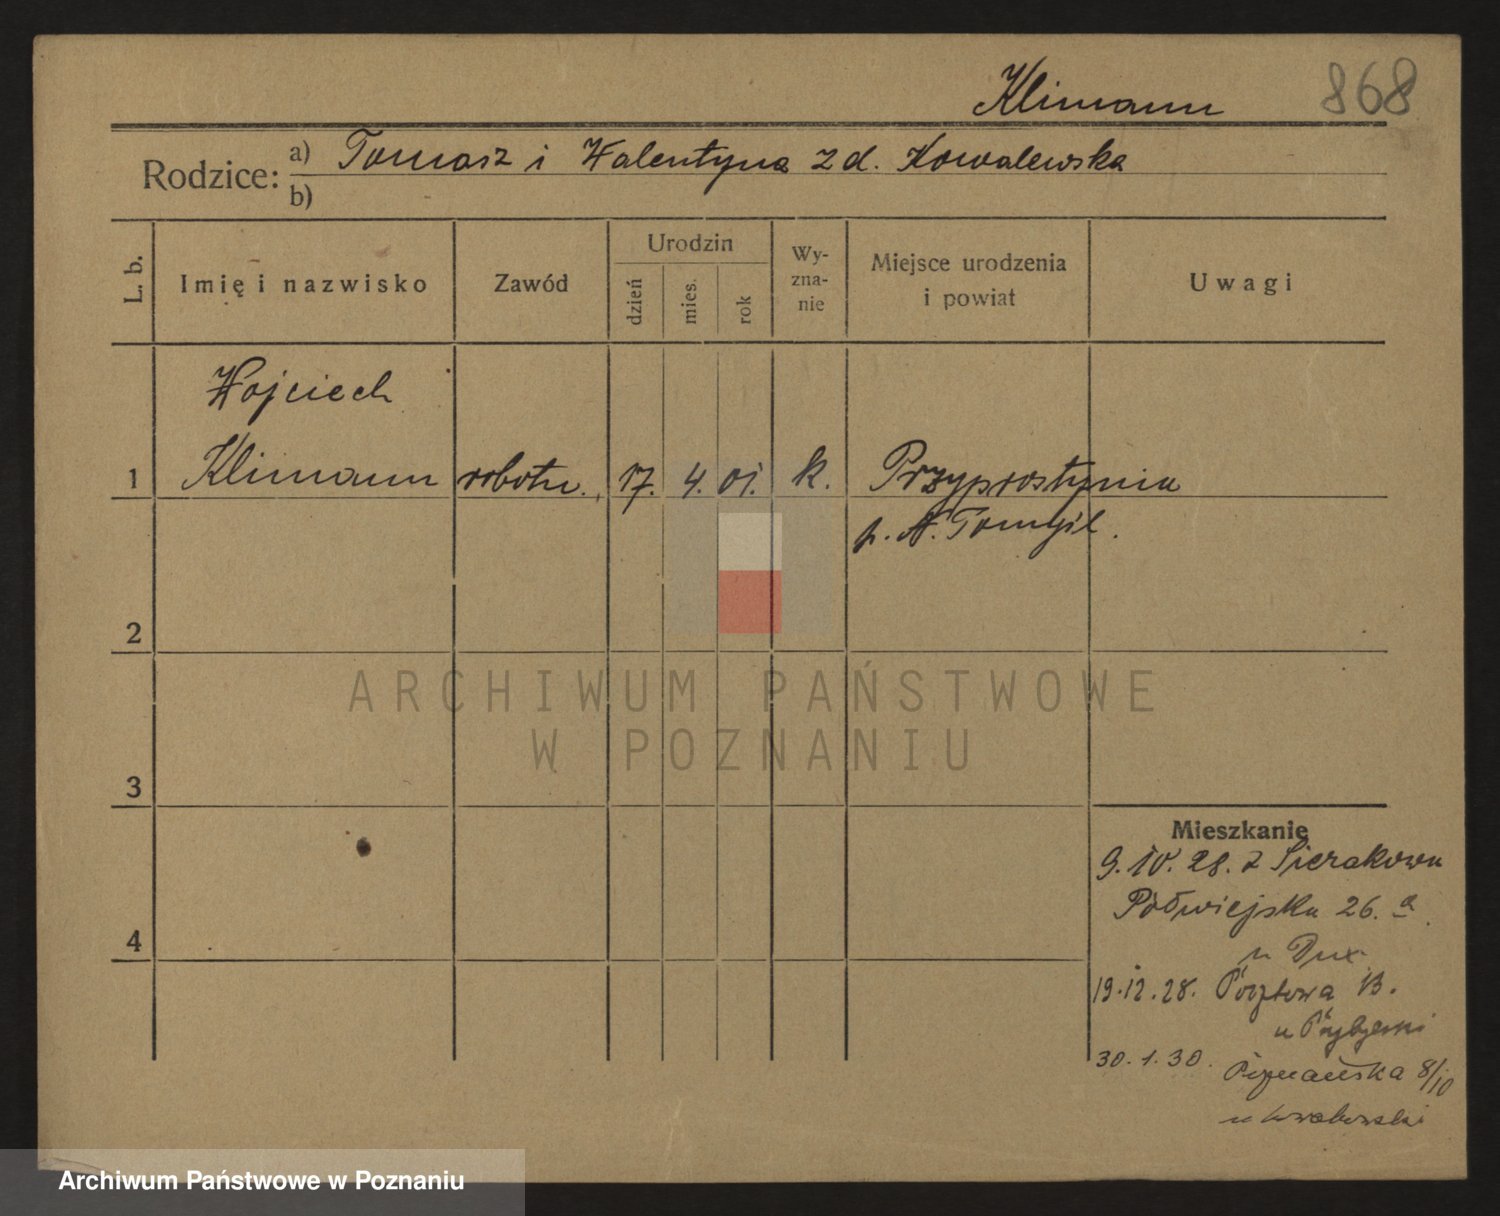 Klimann 868
Rodzice: a) Tomasz i Walentyna z d. Kowalewska
b)
L. b. Imię i nazwisko Zawód Urodzin dzień mies. rok Wy-zna-nie Miejsce urodzenia i powiat Uwagi
Wojciech
1 Klimann robotn. 17. 4. 01. k. Przyprostynia
p. N. Tomyśl.
2
ARCHIWUM PAŃSTWOWE
W POZNANIU
3
Mieszkanie
9.10.28. z Sierakowa
Półwiejska 26. a
4
u Dux
19.12.28. Pocztowa 13.
u
30.1.30. Poznańska 8/10
u
Archiwum Państwowe w Poznaniu